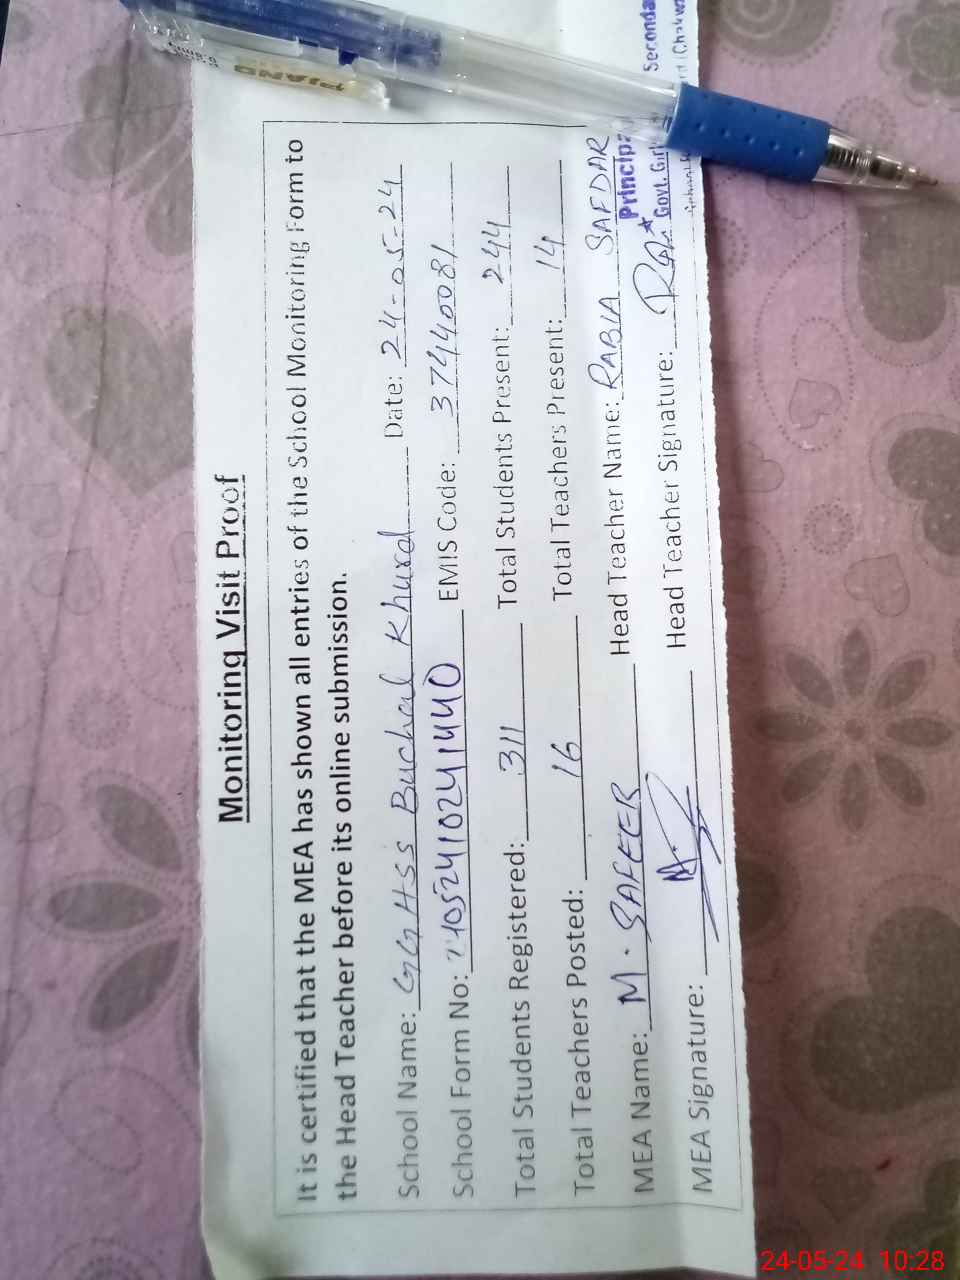 Monitoring Visit Proof
It is certified that the MEA has shown all entries of the School Monitoring Form to
the Head Teacher before its online submission.
School Name: GGHSS Buchal Khurd Date: 24-05-24
School Form No: 24052410241440 EMIS Code: 37440081
Total Students Registered: 311 Total Students Present: 244
Total Teachers Posted: 16 Total Teachers Present: 14
MEA Name: M. SAFEER Head Teacher Name: RABIA SAFDAR
MEA Signature: Head Teacher Signature:
Principa
Govt. Girl Seconda
PIANO
24-05-24 10:28